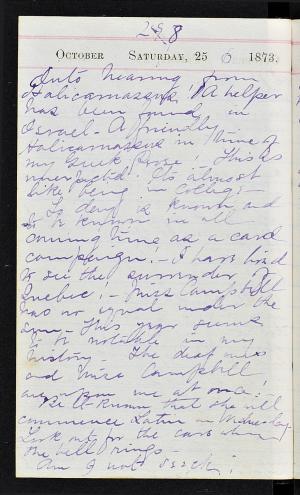 298
OCTOBER SATURDAY, 25 6 1873.
hearing from
Halicarnassus! A helper
has been found in
Israel - A friendly
Halicarnassus in time of
my This is
Its almost
like being in College -
To day is known and
to be known in all
coming time as a card
campaign. - I have lived
to see the surrender of
Quebec! - Miss Campbell
has no equal under the
sun - This year seems
to be notable in my
history - The deaf miss
and Miss Campbell
are upon me at once!
that she will
commence Latin on Wednesday
Look out for the cars when
the bell rings -
Am I not